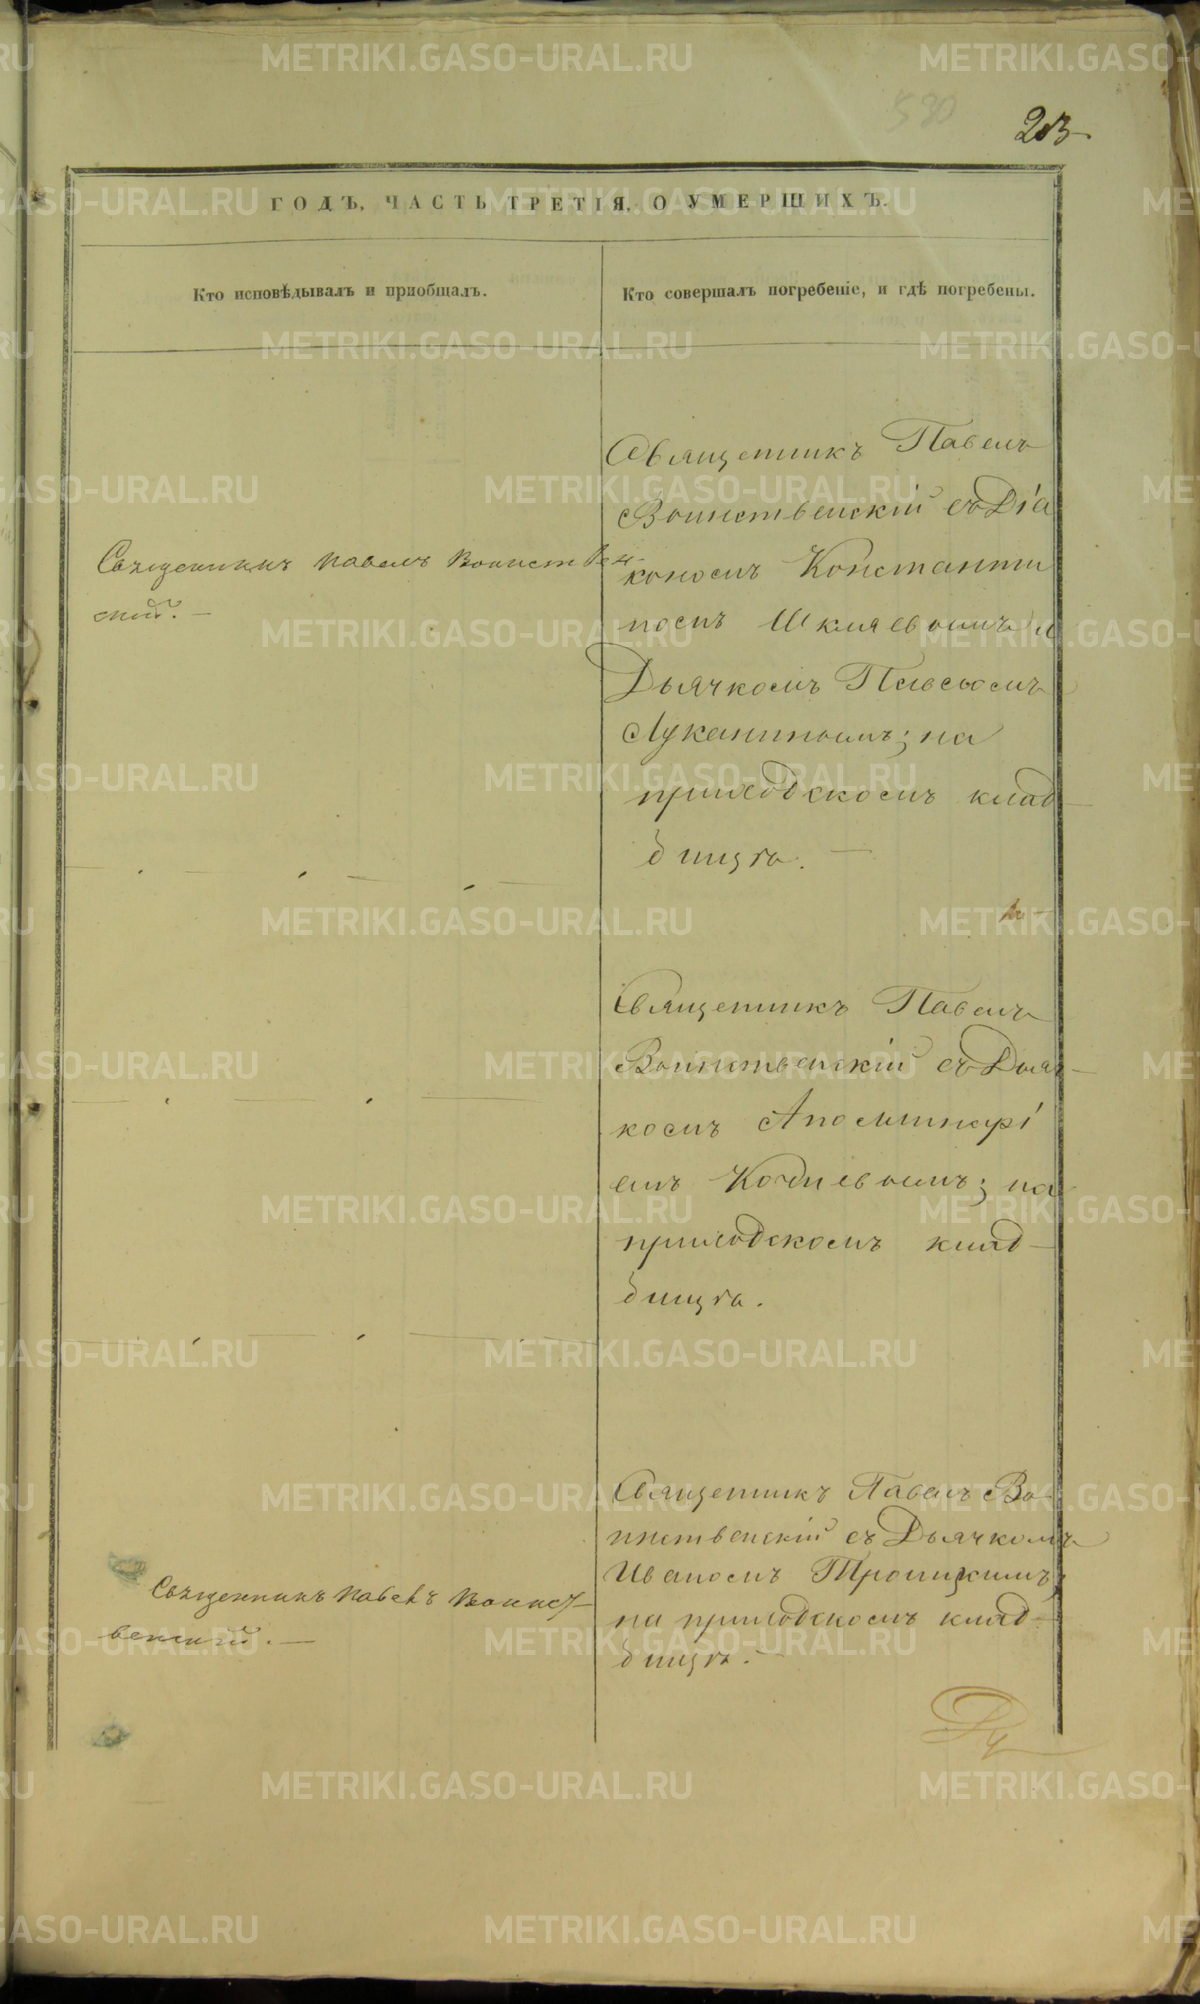 580
203
ГОДЪ, ЧАСТЬ ТРЕТІЯ, О УМЕРШИХЪ.
Кто исповѣдывалъ и пріобщалъ.
Кто совершалъ погребеніе, и гдѣ погребены.
Священникъ Павелъ Воинствен-
скій. —
Священникъ Павелъ
Воинственскій съ Діа
кономъ Константи
номъ Шкляевымъ и
Дьячкомъ
Луканинымъ; на
приходскомъ клад-
бищѣ. —
Священникъ Павелъ
Воинственскій съ Дьяч-
комъ Аполлинарі
емъ ; на
приходскомъ клад-
бищѣ.
Священникъ Павелъ Воинст-
венскій. —
Священникъ Павелъ Во-
инственскій съ Дьячкомъ
Иваномъ Троицкимъ;
на приходскомъ клад-
бищѣ. —
METRIKI.GASO-URAL.RU